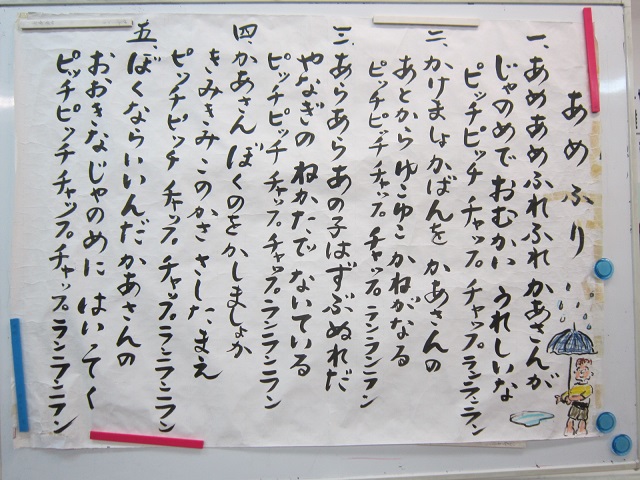 あめふり
一、あめあめふれふれ かあさんが
じゃのめでおむかい うれしいな
ピッチピッチ チャップ チャップ ランランラン
二、かけましょかばんを かあさんの
あとから ゆこゆこ かねがなる
ピッチピッチ チャップ チャップ ランランラン
三、あらあらあの子はずぶぬれだ
やなぎの ねかたで ないている
ピッチピッチ チャップ チャップ ランランラン
四、かあさん ぼくのを かしましょか
きみきみ このかさ さしたまえ
ピッチピッチ チャップ チャップ ランランラン
五、ぼくならいいんだ かあさんの
おおきなじゃのめに はいってく
ピッチピッチ チャップ チャップ ランランラン